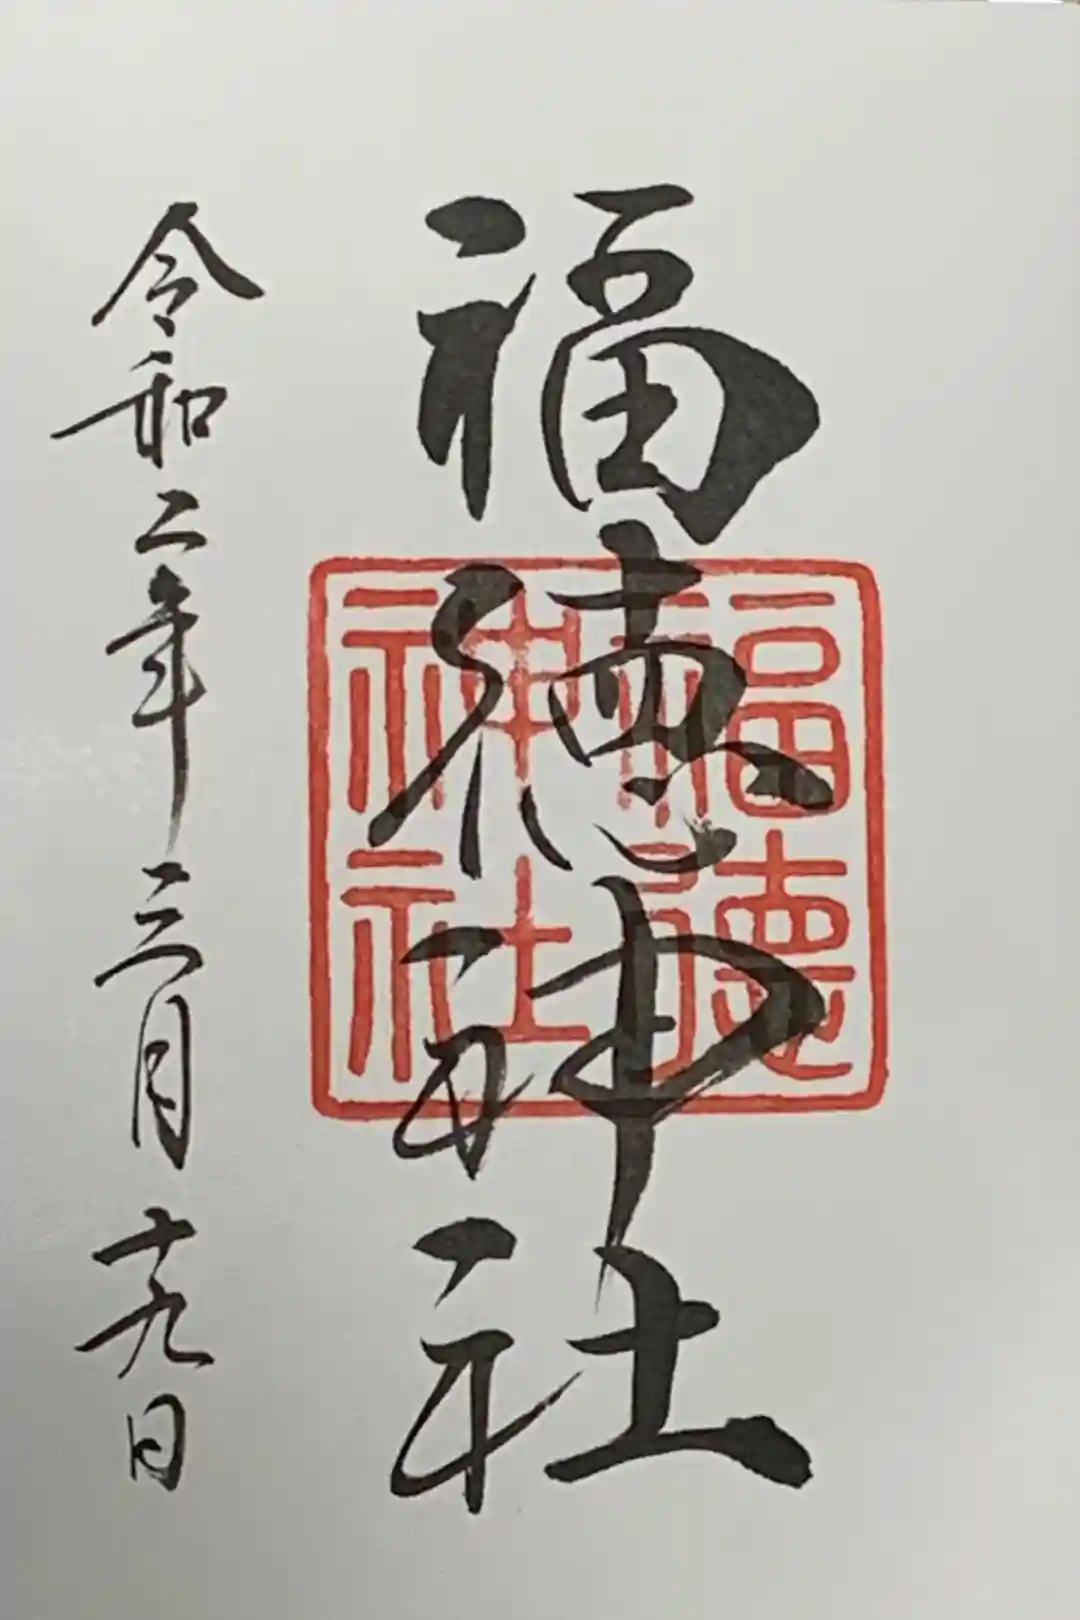 福徳神社
福徳
神社
令和二年三月十九日